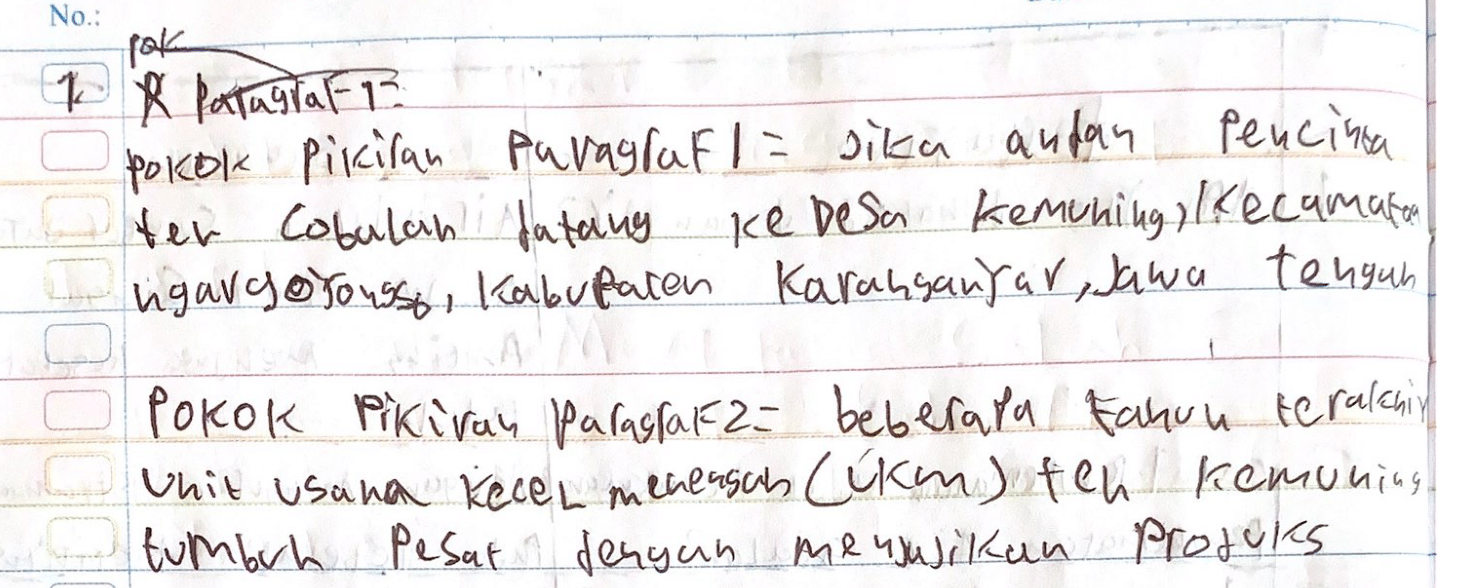 No.:
pok
1. Paragraf 1=
Pokok Pikiran Paragraf 1 = Jika andan Pencinta
teh Cobalah datang ke Desa Kemuning, Kecamatan
ngargoyoso, Kabupaten Karanganyar, Jawa tengah
Pokok Pikiran Paragraf 2= beberapa tahun terakhir
Unit usaha kecel menengah (UKm) teh Kemuning
tumbuh Pesat dengan menjadikan Produks